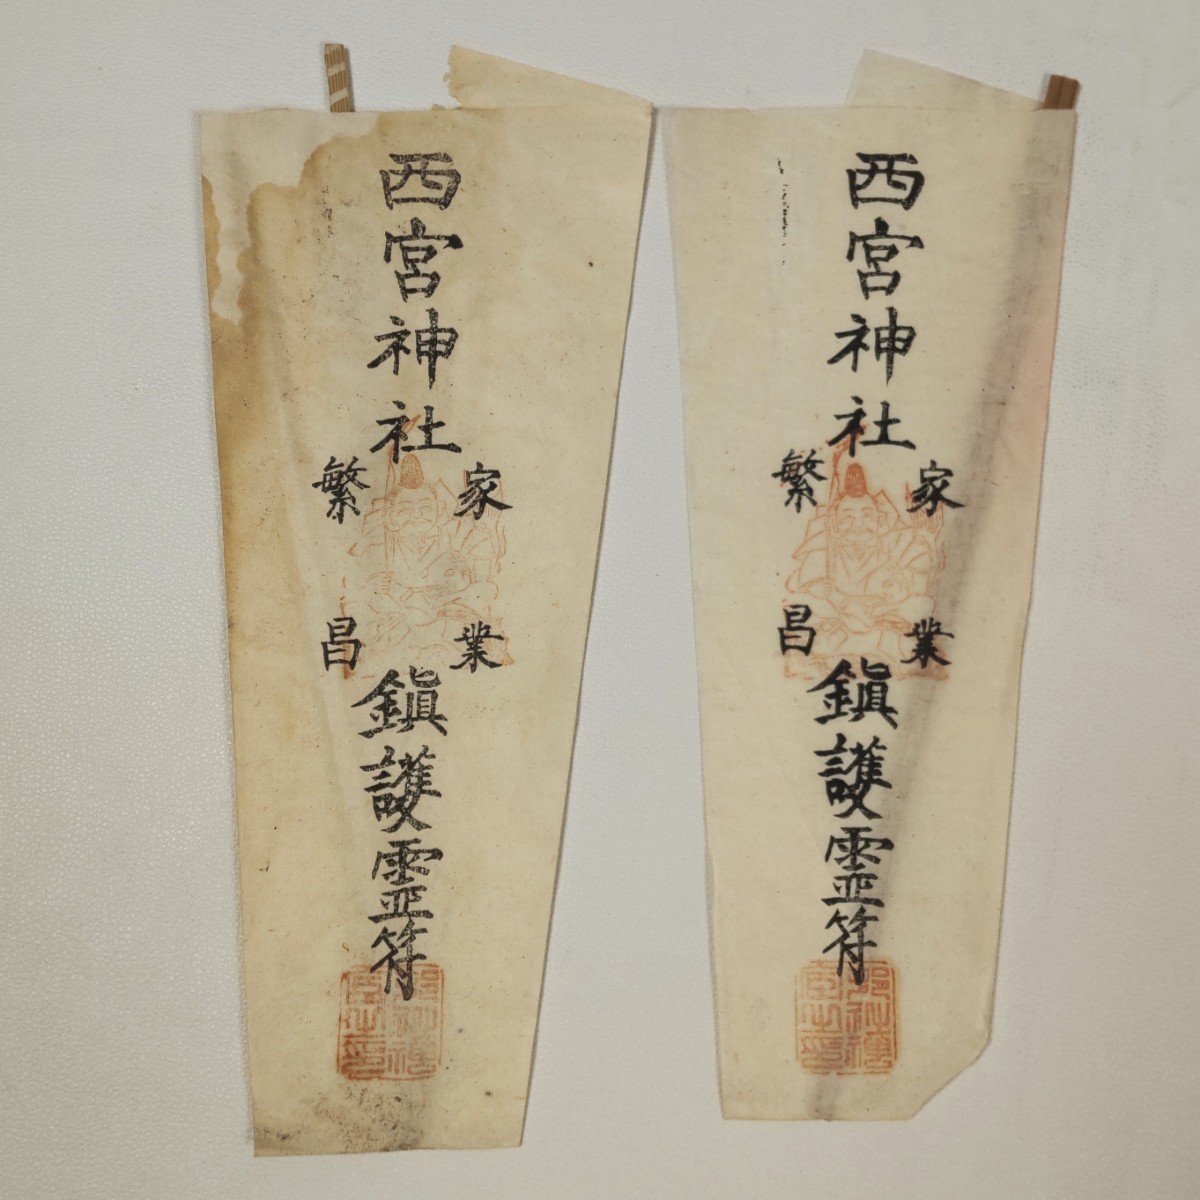 西宮神社
家業
繁昌
鎮護霊符
西宮神社
家業
繁昌
鎮護霊符